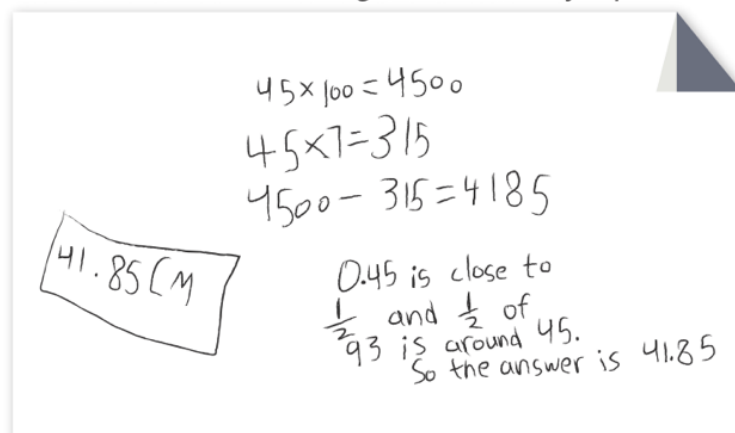 45×100=4500
45×7=315
4500-315=4185
41.85CM
0.45 is close to
1/2 and 1/2 of
93 is around 45.
So the answer is 41.85